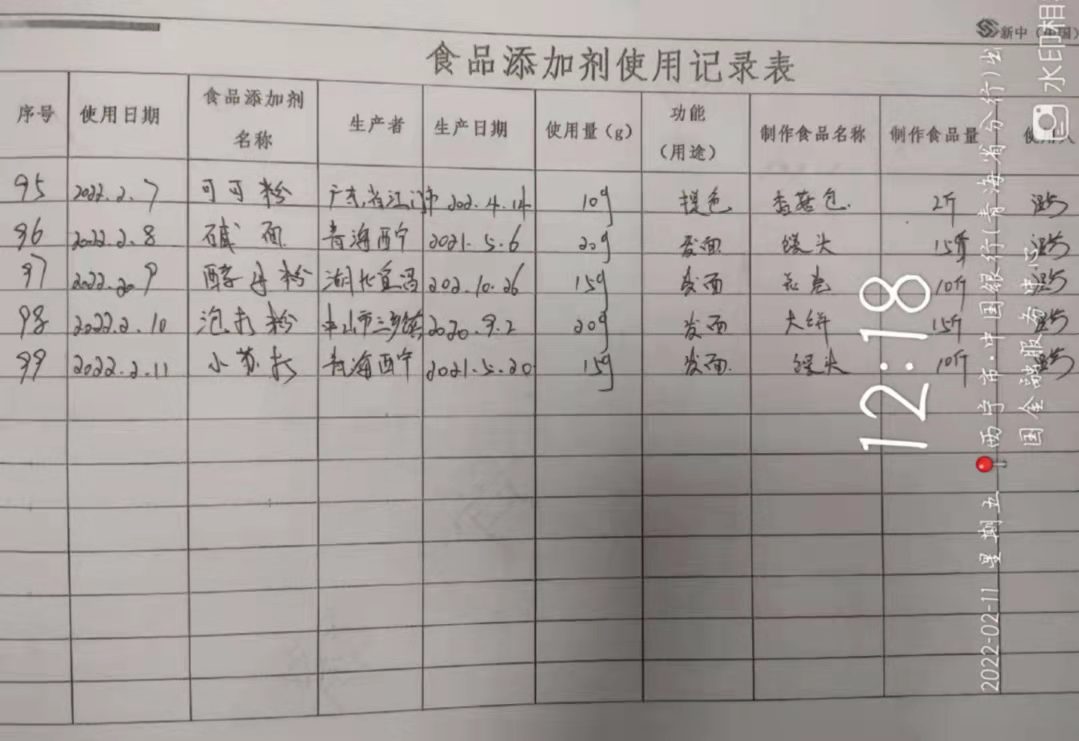 新中
水印相
食品添加剂使用记录表
序号 使用日期 食品添加剂名称 生产者 生产日期 使用量(g) 功能(用途) 制作食品名称 制作食品量 使用人
95 2022.2.7 可可粉 广东省江门市 202.4.14 10g 提色 香菇包 2斤
96 2022.2.8 碱面 青海西宁 2021.5.6 20g 发面 馒头 15斤
97 2022.2.9 酵母粉 湖北宜昌 202.10.26 15g 发面 花卷 10斤
98 2022.2.10 泡打粉 中山市三乡镇 2020.9.2 20g 发面 大饼 15斤
99 2022.2.11 小苏打 青海西宁 2021.5.20 15g 发面 馒头 10斤
12:18
2022-02-11 星期五 西宁市·中国银行(青海省分行)
国金融服务